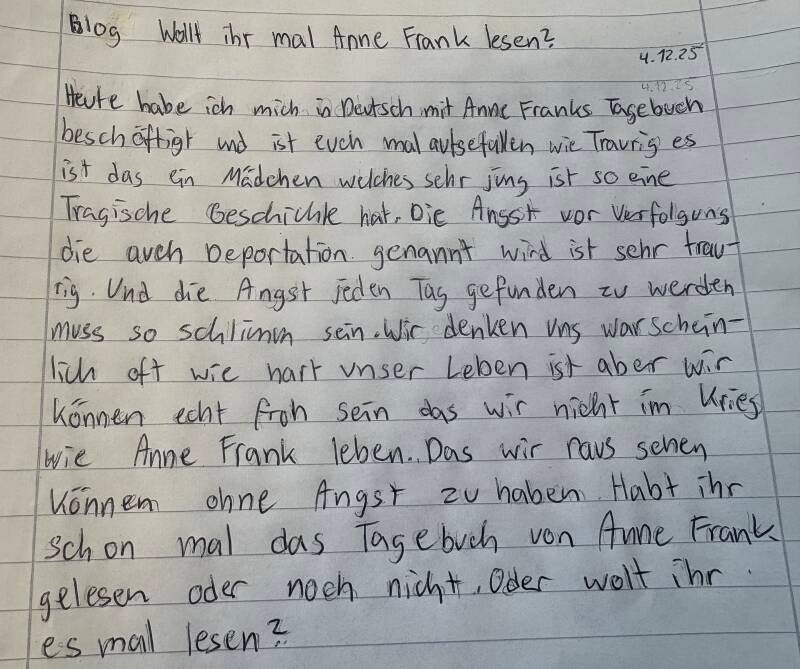 Blog Wollt ihr mal Anne Frank lesen?
4.12.25
4.12.25
Heute habe ich mich in Deutsch mit Anne Franks Tagebuch
beschäftigt und ist euch mal aufgefallen wie Traurig es
ist das ein Mädchen welches sehr jung ist so eine
Tragische Geschichte hat. Die Angst vor Verfolgung
die auch Deportation genannt wird ist sehr trau-
rig. Und die Angst jeden Tag gefunden zu werden
muss so schlimm sein. Wir denken uns warschein-
lich oft wie hart unser Leben ist aber wir
können echt froh sein das wir nicht im Krieg
wie Anne Frank leben. Das wir raus gehen
können ohne Angst zu haben. Habt ihr
schon mal das Tagebuch von Anne Frank
gelesen oder noch nicht. Oder wolt ihr
es mal lesen?